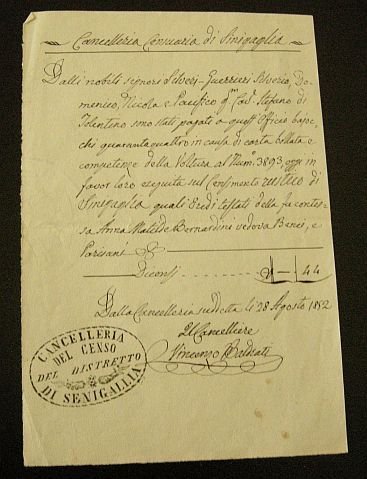 Cancelleria Censuaria di Sinigaglia
Dalli nobili signori Silverj-Guerrieri Silverio, Do-
menico, Nicola e Pacifico q.m Cav. Stefano di
Tolentino sono stati pagati a quest'Officio bajoc-
chi quarantaquattro in causa di carta bollata e
competenze della Voltura al Num.º 3893, oggi in
favor loro eseguita sul Censimento rustico di
Sinigaglia quali Eredi testati della fu contes-
sa Anna Matilde Bernardini vedova Benis, e
Parisani
Diconsi — 44
Dalla Cancelleria suddetta li 28 Agosto 1852
Il Cancelliere
Vincenzo
CANCELLERIA
DEL CENSO
DEL DISTRETTO
DI SENIGALLIA